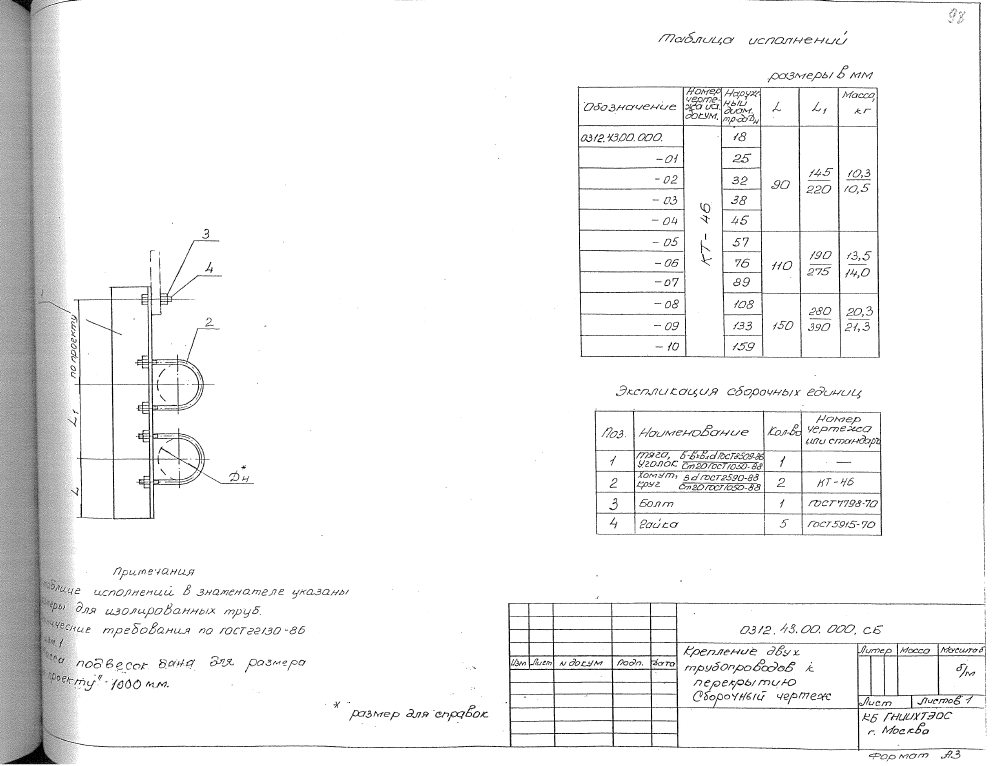 98
Таблица исполнений
размеры в мм
Обозначение | Номер черте-жа из докум. | Наруж-ный диам. | L | L₁ | Масса, кг
0312.43.00.000. | КТ-46 | 18 | 90 | 145/220 | 10,3/10,5
-01 | 25
-02 | 32
-03 | 38
-04 | 45
-05 | 57 | 110 | 190/275 | 13,5/14,0
-06 | 76
-07 | 89
-08 | 108 | 150 | 280/390 | 20,3/21,3
-09 | 133
-10 | 159
3
4
2
1
по проекту
L₁
L
Dн*
Экспликация сборочных единиц
Поз. | Наименование | Кол-во | Номер чертежа или стандарт
1 | Тяга, уголок | 1 | —
2 | Хомут, круг Вd ГОСТ2590-88 / Ст20 ГОСТ1050-88 | 2 | КТ-46
3 | Болт | 1 | ГОСТ7798-70
4 | Гайка | 5 | ГОСТ5915-70
Примечания
исполнений в знаменателе указаны
для изолированных труб.
требования по ГОСТ22130-86
подвесок дана для размера
проекту"-1000 мм.
* размер для справок
0312.43.00.000.СБ
Изм Лист N докум Подп. Дата
Крепление двух
трубопроводов к
перекрытию
Сборочный чертеж
Литер Масса Масштаб
б/м
Лист Листов 1
КБ ГНИИХТЭОС
г. Москва
Формат А3